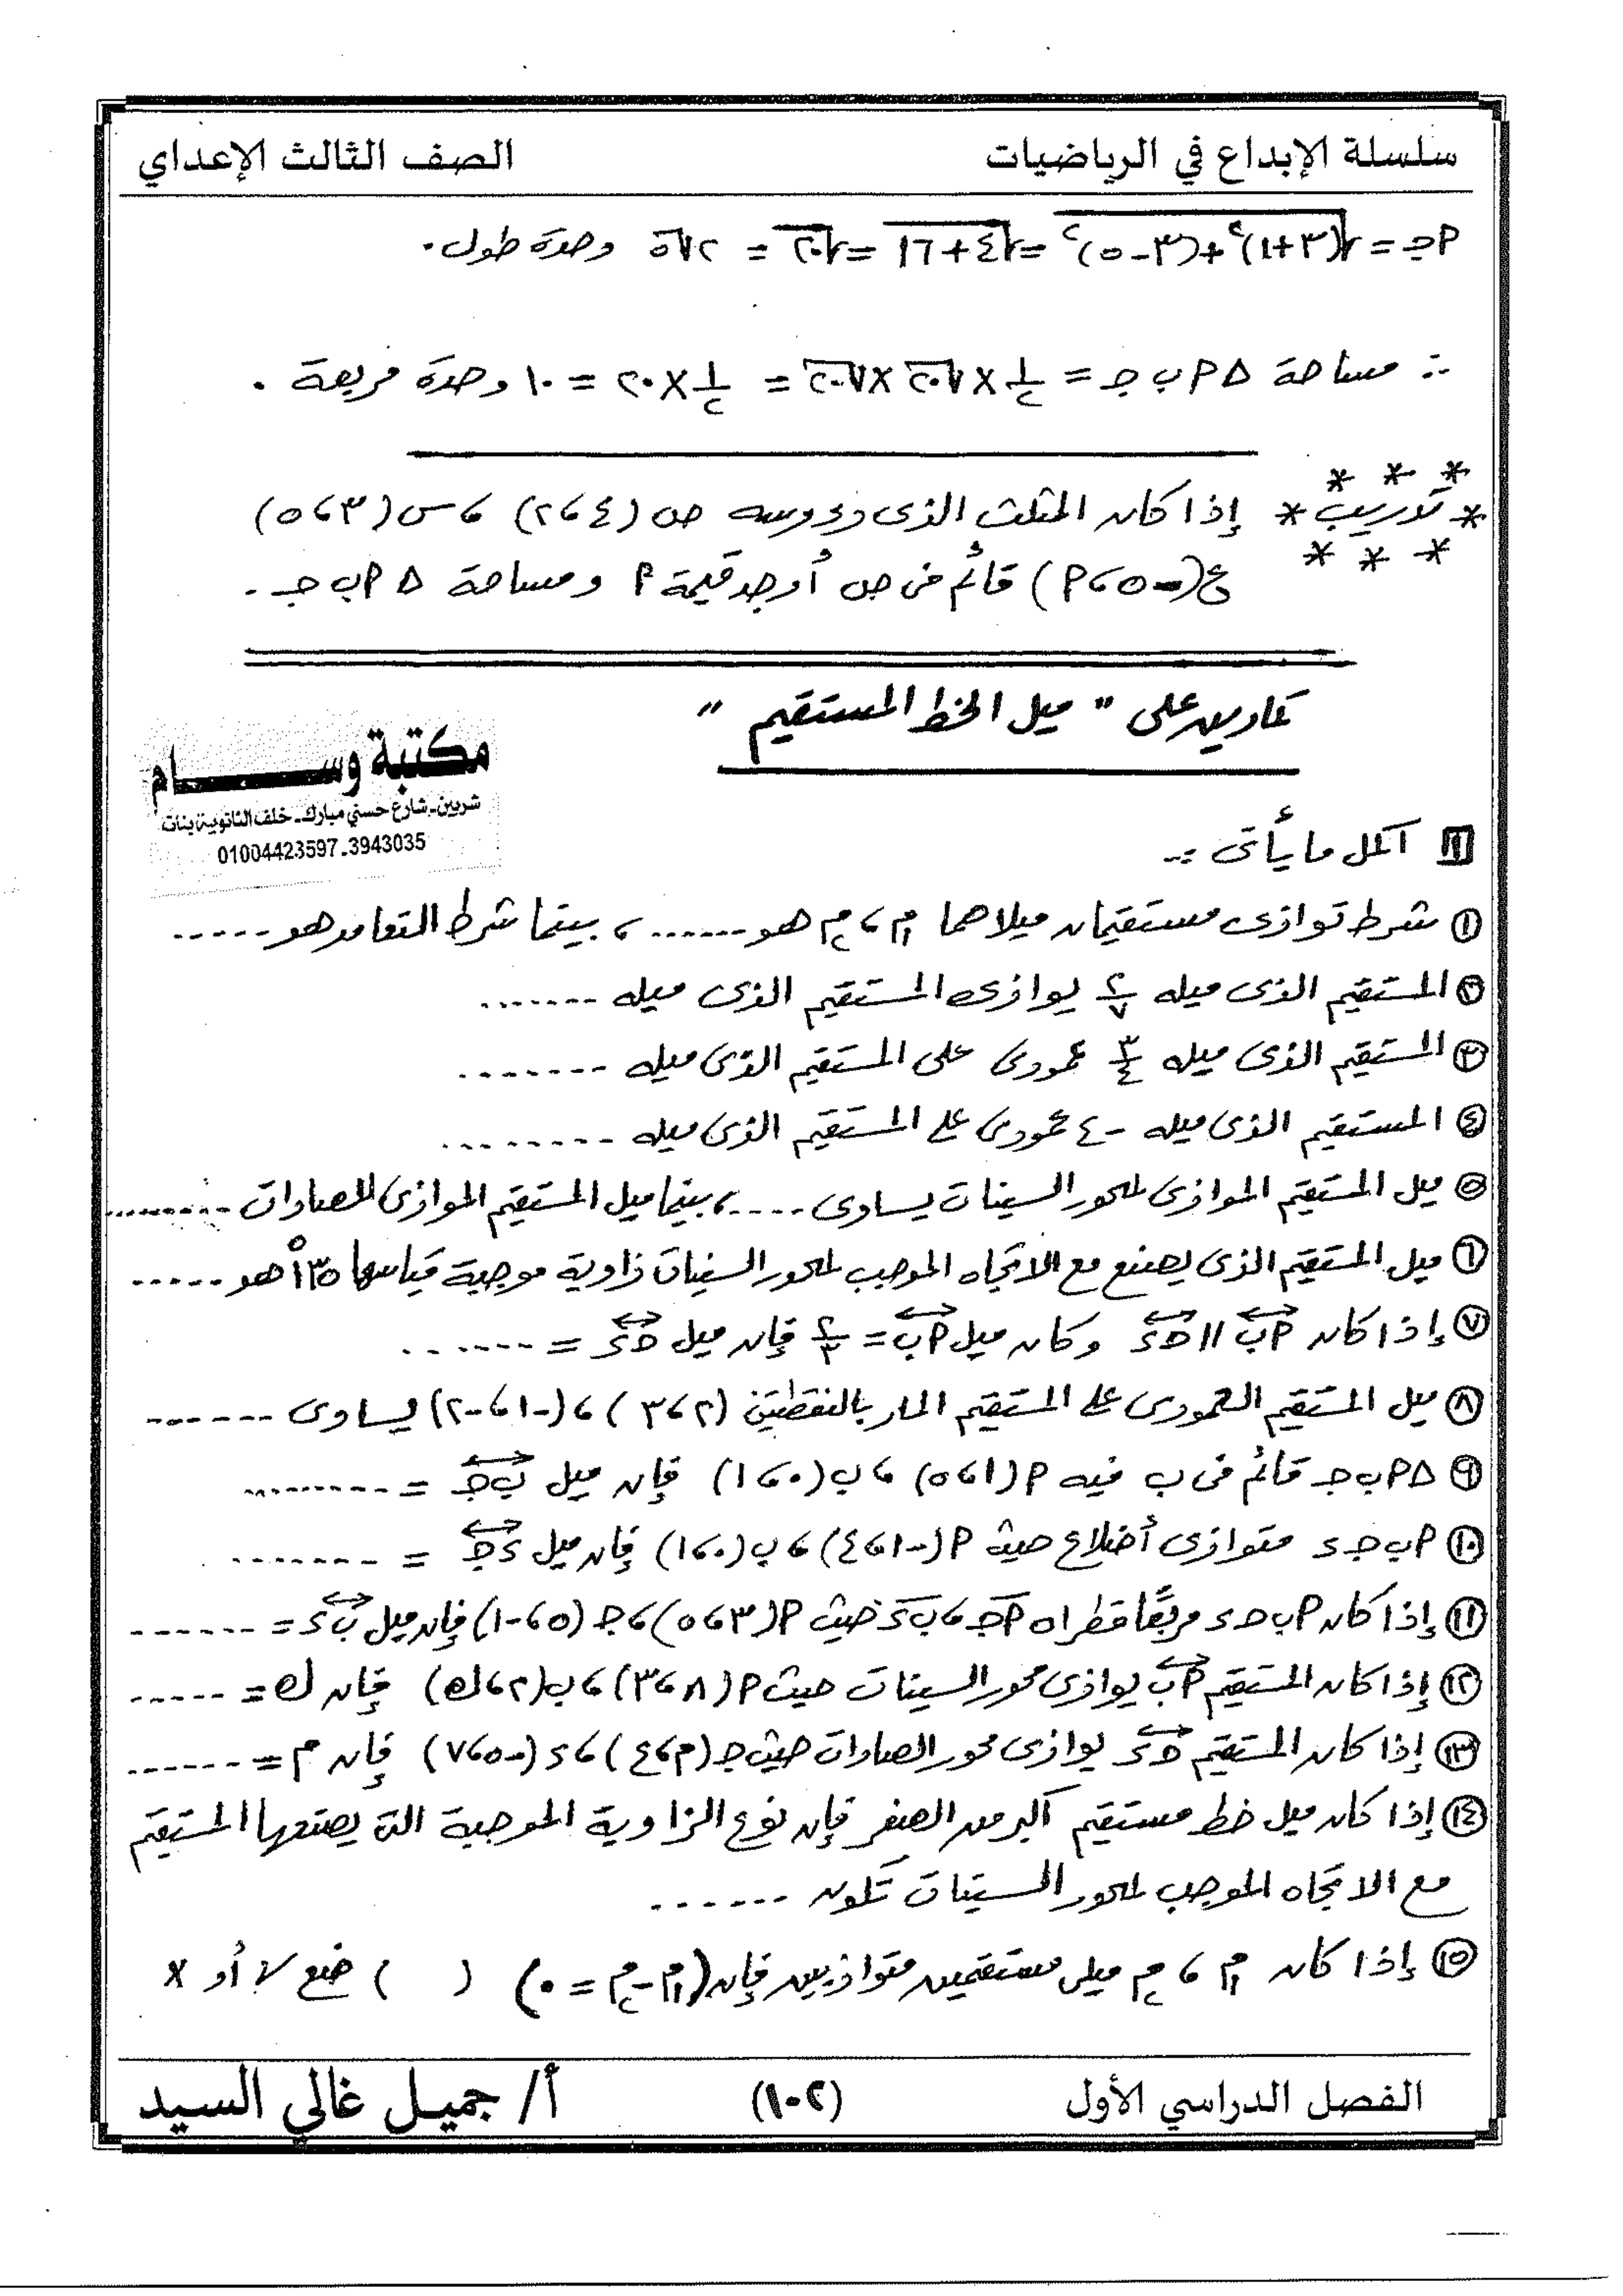 سلسلة الإبداع في الرياضيات الصف الثالث الإعداي
أجـ = √(٣+١)٢+(٣-٥)٢ = √٤+١٦ = √٢٠ = ٢√٥ وحدة طول .
∴ مساحة △ أ ب جـ = ١/٢ × √٢٠ × √٢٠ = ١/٢ × ٢٠ = ١٠ وحدة مربعة .
* * *
* تدريب * إذا كان المثلث الذى رءوسه ص (٤ ، ٢) ، س (٣ ، ٥)
* * *
ع (-٥ ، أ) قائم فى ص أوجد قيمة أ ومساحة △ أ ب جـ .
تمارين على " ميل الخط المستقيم "
مكتبة وســــام
شربين ـ شارع حسني مبارك ـ خلف الثانوية بنات
01004423597 ـ 3943035
[١] أكمل ما يأتى :-
(١) شرط توازى مستقيمان ميلاهما م١ ، م٢ هو ...... ، بينما شرط التعامد هو .....
(٢) المستقيم الذى ميله ٢/٧ يوازى المستقيم الذى ميله .......
(٣) المستقيم الذى ميله ٣/٤ عمودى على المستقيم الذى ميله .......
(٤) المستقيم الذى ميله -٤ عمودى على المستقيم الذى ميله .........
(٥) ميل المستقيم الموازى لمحور السينات يساوى ..... ، بينما ميل المستقيم الموازى للصادات .........
(٦) ميل المستقيم الذى يصنع مع الاتجاه الموجب لمحور السينات زاوية موجبة قياسها ١٣٥° هو .....
(٧) إذا كان أب // حـ د وكان ميل أب = ٢/٣ فإن ميل حـ د = .......
(٨) ميل المستقيم العمودى على المستقيم المار بالنقطتين (٢ ، ٣) ، (-١ ، -٢) يساوى ......
(٩) △ أ ب جـ قائم فى ب فيه أ (١ ، ٥) ، ب (٠ ، ١) فإن ميل ب جـ = .........
(١٠) أ ب جـ د متوازى أضلاع حيث أ (-١ ، ٤) ، ب (٠ ، ١) فإن ميل د جـ = .......
(١١) إذا كان أ ب حـ د مربعًا قطراه أجـ ، ب د حيث أ (٣ ، ٥) ، جـ (٥ ، -١) فإن ميل ب د = ......
(١٢) إذا كان المستقيم أب يوازى محور السينات حيث أ (٨ ، ٣) ، ب (٢ ، ك) فإن ك = .....
(١٣) إذا كان المستقيم حـ د يوازى محور الصادات حيث جـ (م ، ٤) ، د (-٥ ، ٧) فإن م = ......
(١٤) إذا كان ميل خط مستقيم أكبر من الصفر فإن نوع الزاوية الموجبة التى يصنعها المستقيم
مع الاتجاه الموجب لمحور السينات تكون ......
(١٥) إذا كان م١ ، م٢ ميلى مستقيمين متوازيين فإن (م١ - م٢ = ٠) ( ) ضع √ أو ×
الفصل الدراسي الأول (١٠٢) أ/ جميل غالي السيد